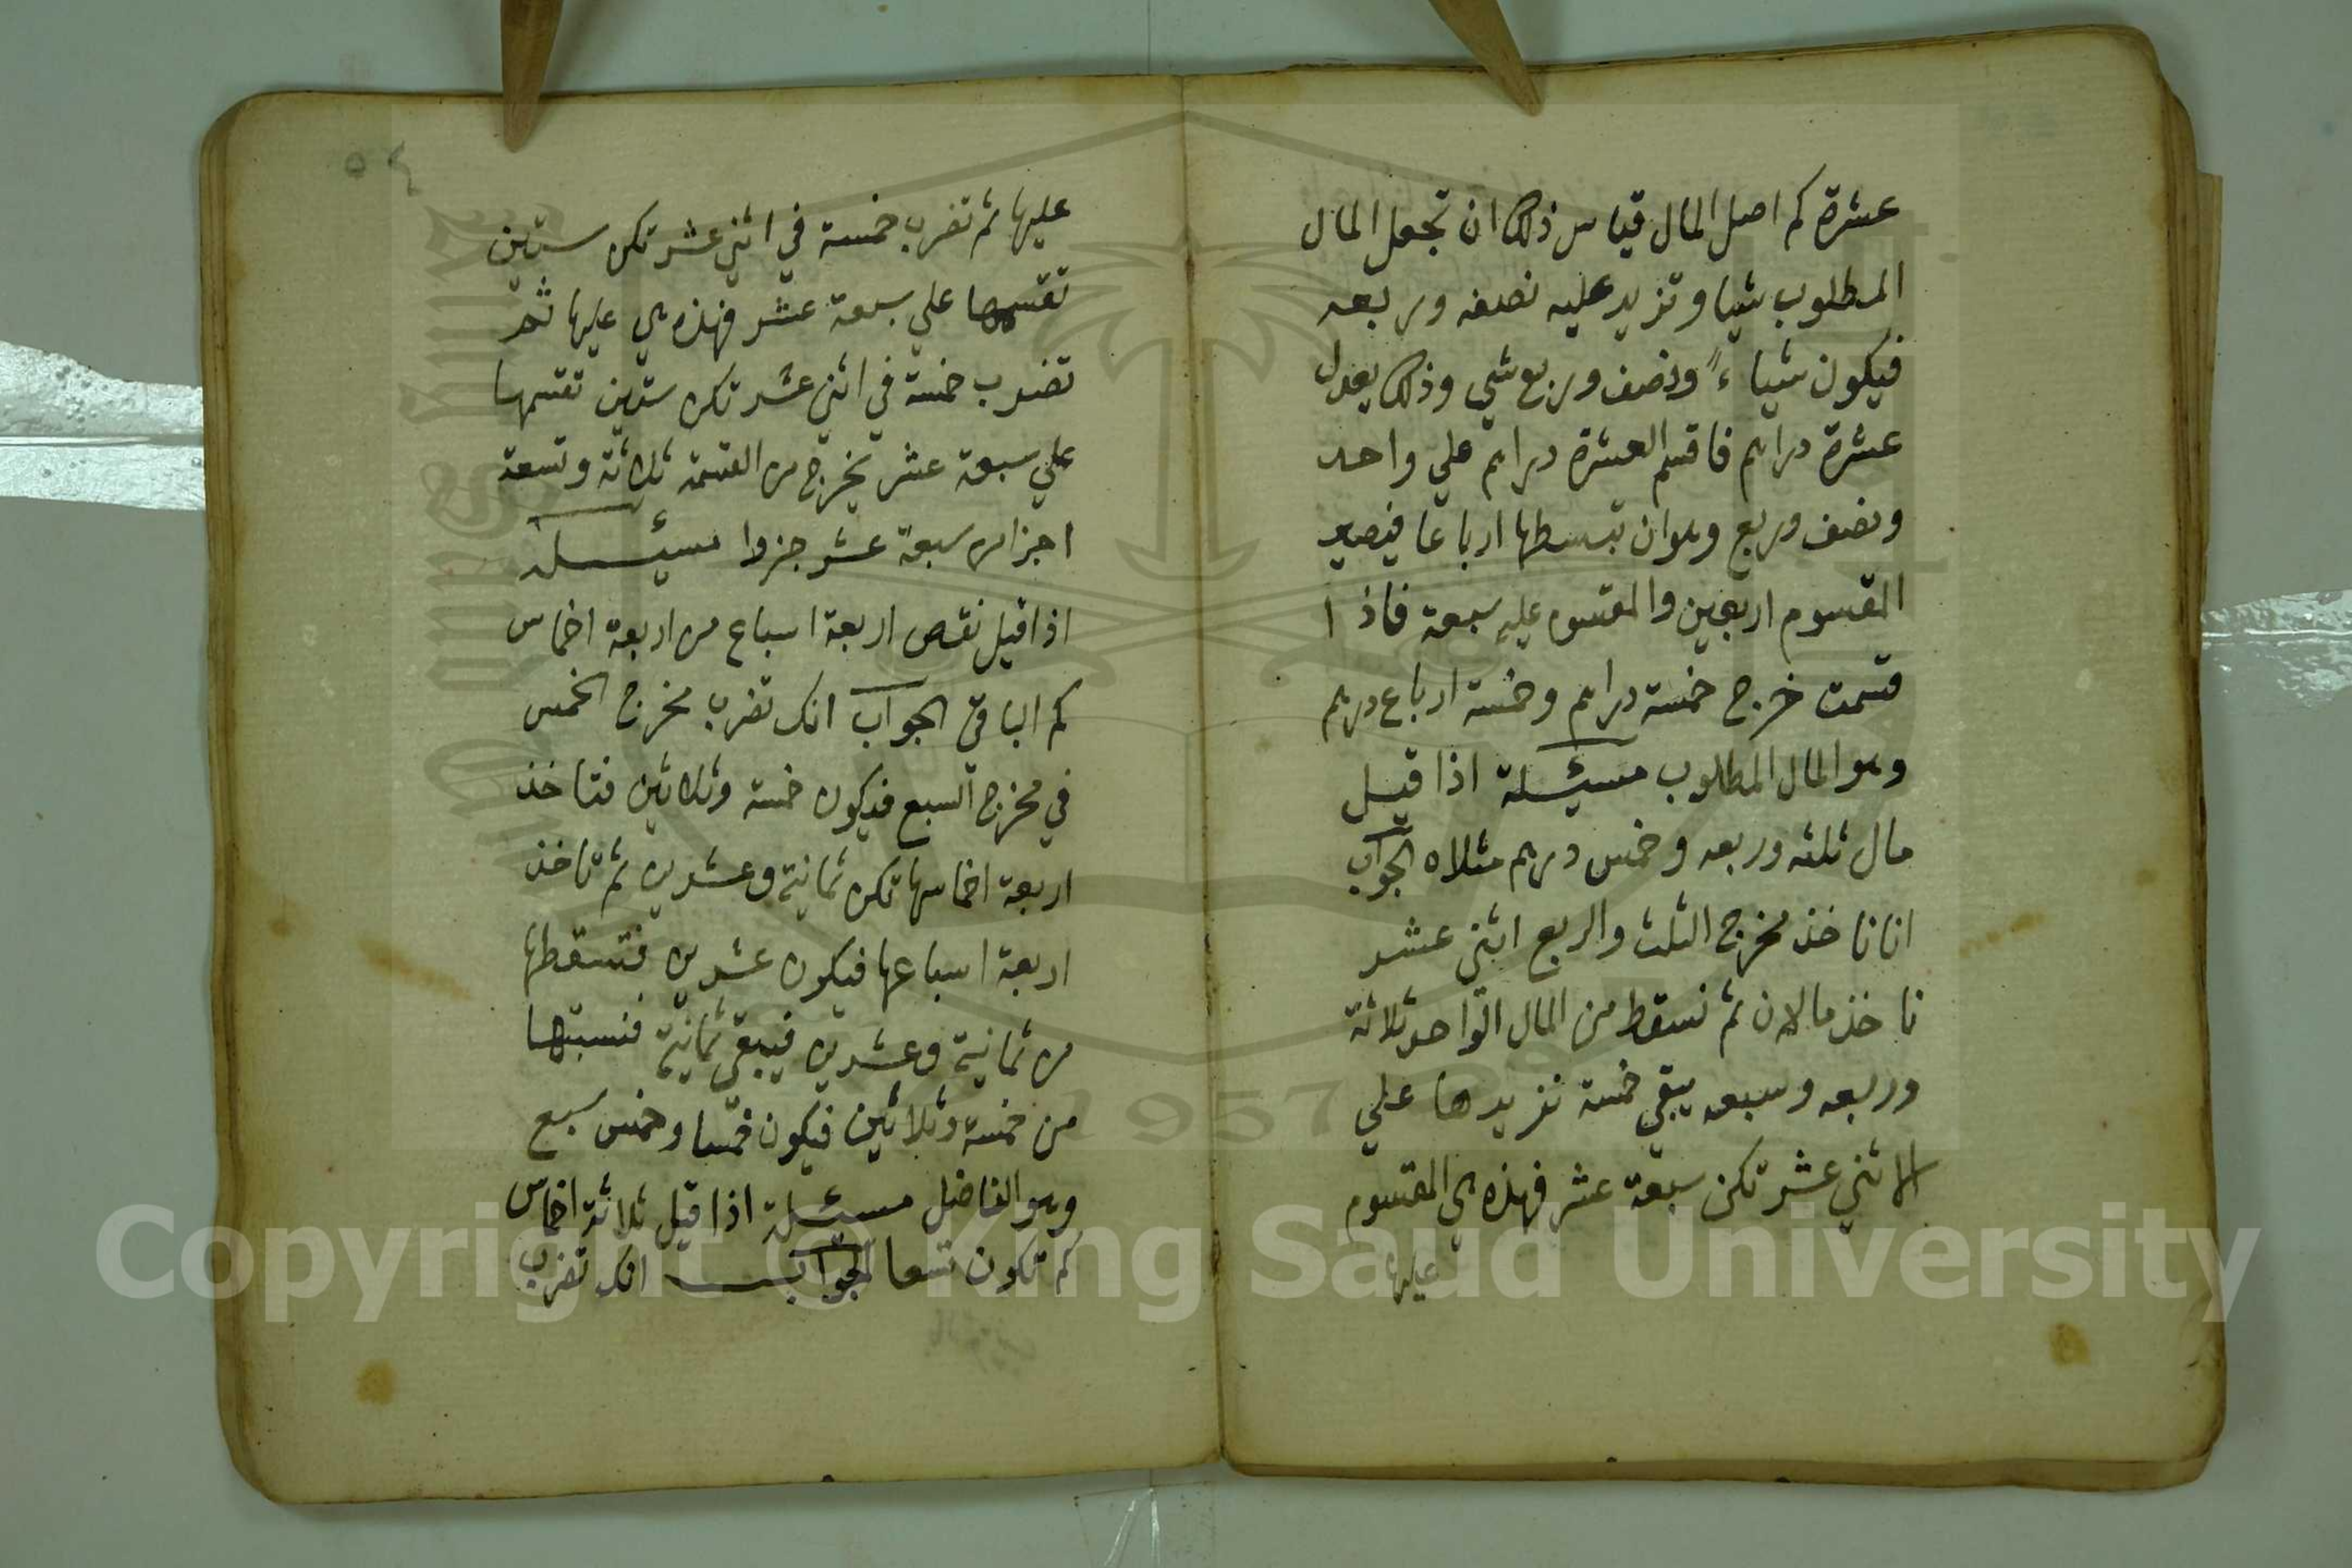 عشرة كم اصل المال قياس ذلك ان تجعل المال
المطلوب شيا وتزيد عليه نصفه وربعه
فيكون شياءً ونصف وربع شي وذلك يعدل
عشرة دراهم فاقسم العشرة دراهم علي واحد
ونصف وربع وهو ان تبسطها ارباعا فيصير
المقسوم اربعين والمقسوم عليه سبعة فاذا
قسمت خرج خمسة دراهم وخمسة ارباع درهم
وهو المال المطلوب مسيئلة اذا قيل
مال ثلثه وربعه وخمس درهم مثلاه الجواب
انا ناخذ مخرج الثلث والربع اثني عشر
ناخذ مالان ثم نسقط من المال الواحد ثلاثة
وربعه وسبعه يبقي خمسة نزيدها علي
الاثني عشر تكن سبعة عشر فهذه هي المقسوم
عليها
٥٤
عليها ثم تضرب خمسة في اثني عشر تكن ستين
تقسمها علي سبعة عشر فهذه هي عليها ثم
تضرب خمسة في اثني عشر تكن ستين تقسمها
علي سبعة عشر يخرج من القسمة ثلاثة وتسعة
اجزا من سبعة عشر جزوا مسيئلة
اذا قيل نقص اربعة اسباع من اربعة اخماس
كم الباقي الجواب انك تضرب مخرج الخمس
في مخرج السبع فيكون خمسة وثلاثين فتاخذ
اربعة اخماسها تكن ثمانية وعشرين ثم تاخذ
اربعة اسباعها فيكون عشرين فتسقطها
من ثمانية وعشرين فيبقي ثمانية فنسبتها
من خمسة وثلاثين فيكون خمسا وخمس سبع
وهو الفاضل مسيئلة اذا قيل ثلاثة اخماس
كم تكون تسعا الجواب انك تضرب
Copyright © King Saud University
1957